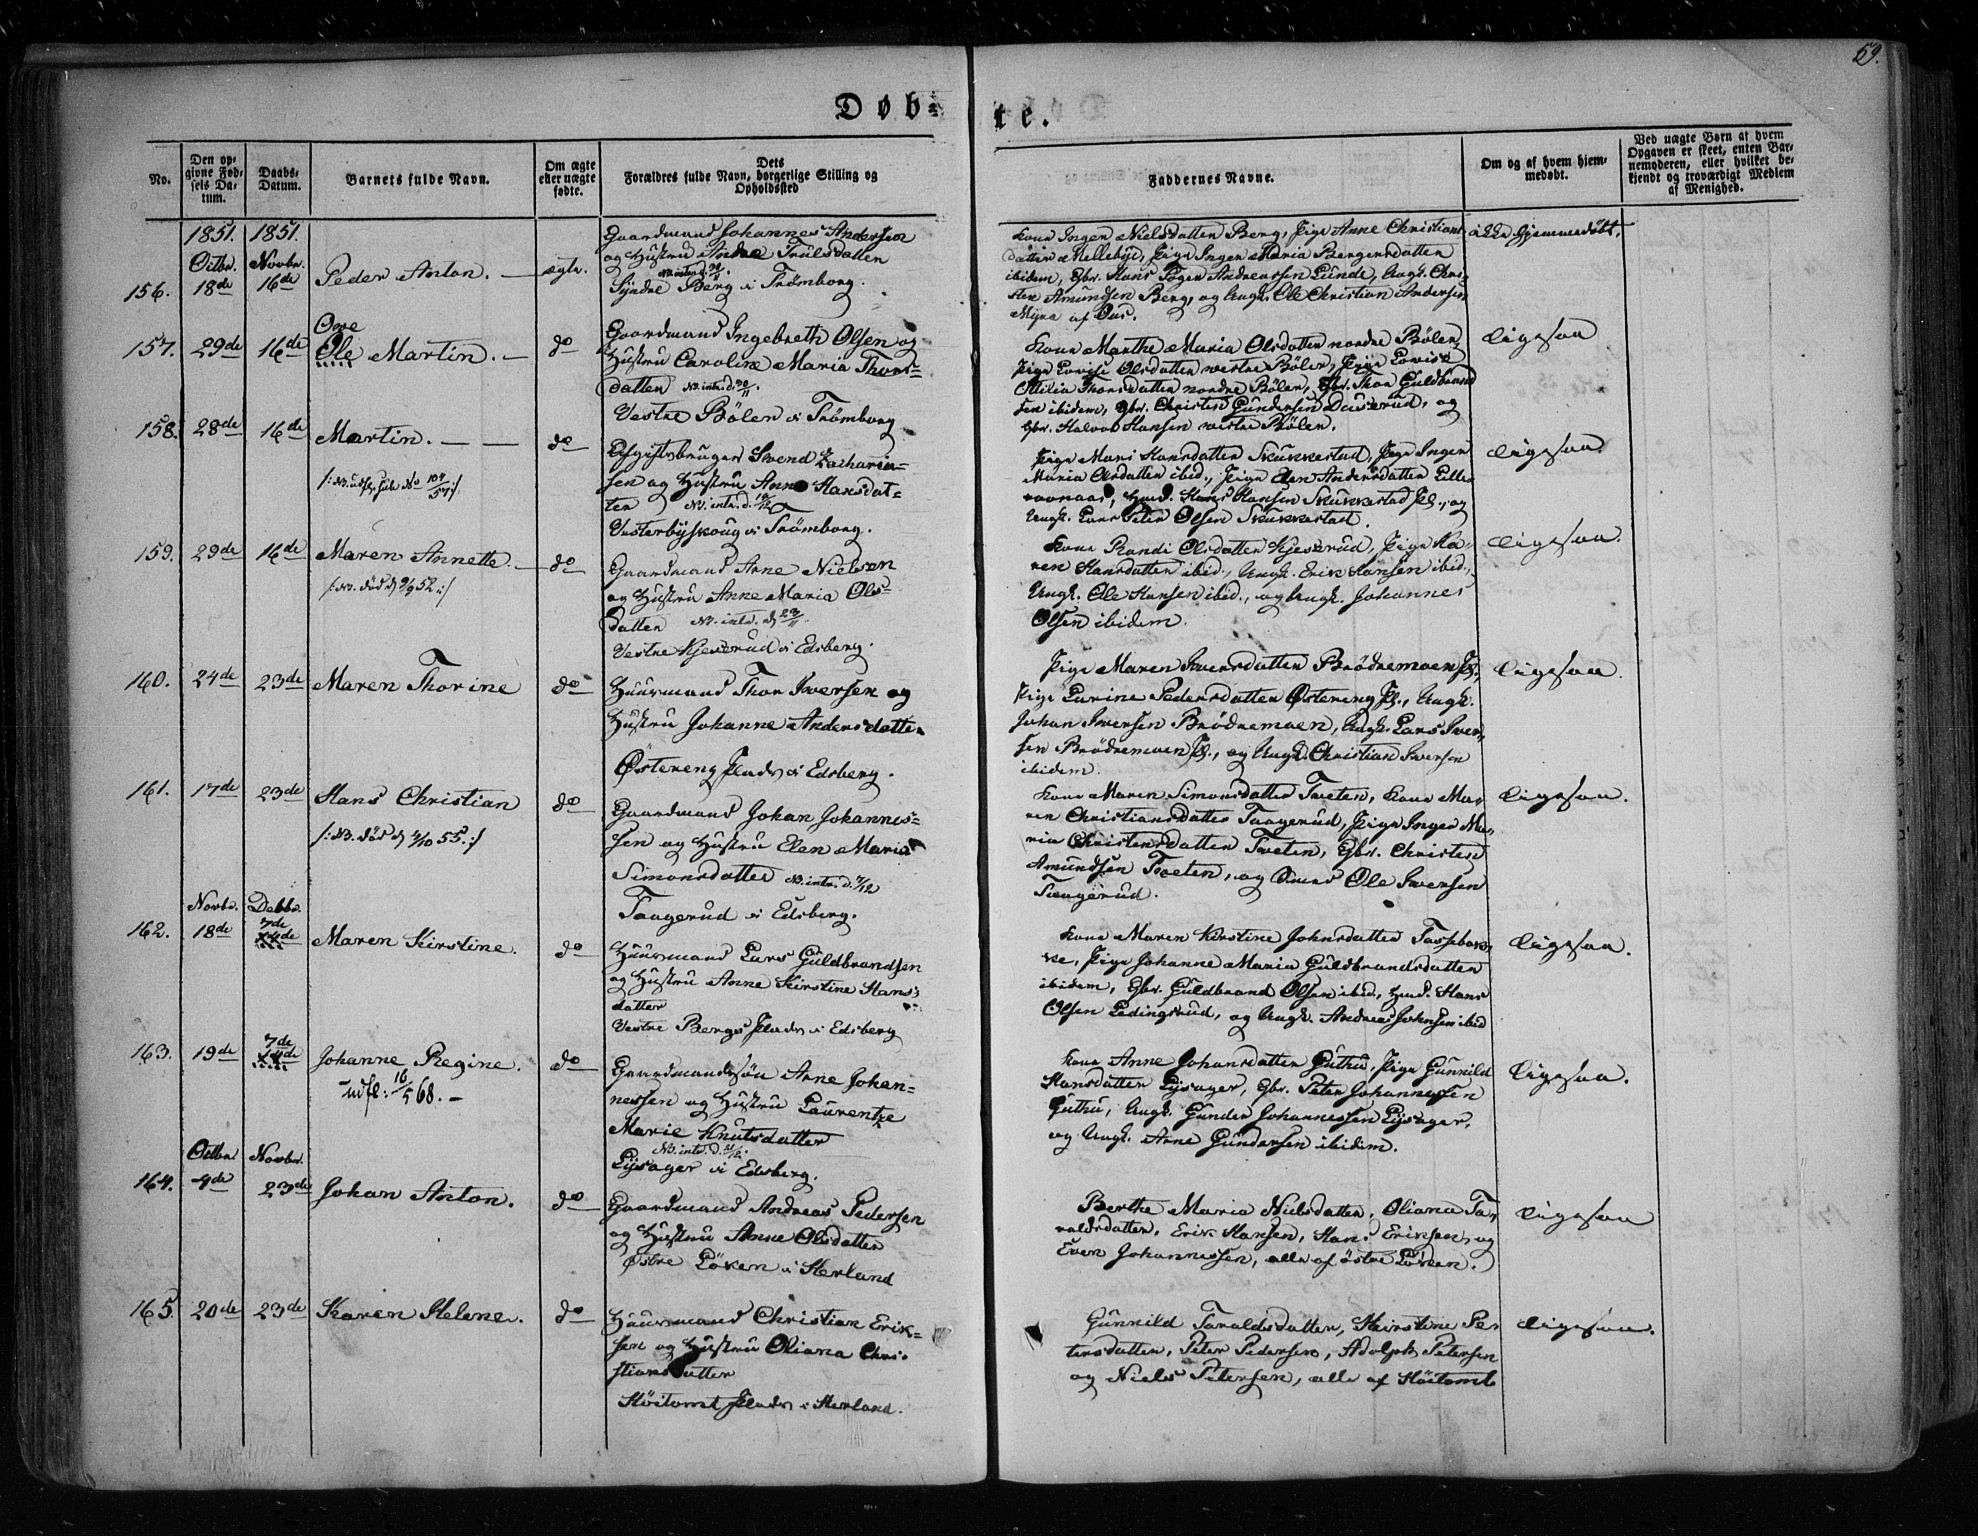 59.
Døb-
te.
No.
Den op-
givne Fød-
sels Da-
tum.
Daabs-
Datum.
Barnets fulde Navn.
Om ægte
eller uægte
fødte.
Dets
Forældres fulde Navn, borgerlige Stilling og
Opholdssted
Faddernes Navne.
Om og af hvem hjem-
medøbt.
Ved uægte Børn af hvem
Opgaven er skeet, enten Bar-
nemoderen, eller hvilket be-
kjendt og troværdigt Medlem
af Menighed.
1851. 1851.
Octbr. Novbr.
156. 18de 16de Peder Anton. — ægte.
Gaardmand Johannes Andersen
og Hustru Andrea Trulsdatten
NB. intr. d. 30/11.
Syndre Berg i Trømborg.
Kone Inger Nielsdatten Berg, Pige Anne Christians
datten Mellebye, Pige Inger Maria Bergersdatten
ibidem, Gbr. Hans Peger Andreassen Lunde, Ungk. Chri-
sten Amundsen Berg, og Ungk. Ole Christian Andersen
Myra af Aas.
ikke hjemmedøbt.
157. 29de 16de
Ove
Ole Martin. — do
Gaardmand Ingebreth Olsen og
Hustru Caroline Maria Thors-
datten NB. intr. d. 30/11.
Vestre Bølen i Trømborg
Kone Marthe Maria Olsdatten nordre Bølen,
Pige Lovise Olsdatten vestre Bølen, Pige Lovise
Ottilia Thorsdatten nordre Bølen, Gbr. Thor Guldbrand
sen ibidem, Gbr. Christen Gundersen Duserud, og
Gbr. Halvor Hansen vestre Bølen.
Ligesaa
158. 28de 16de Martin. — — do
/: NB. udfl. seh No 104/57 :/
Afgiftsbruger Svend Zacharia-
sen og Hustru Anne Hansdat-
ten NB. intr. d. 10/12
Vesterbyskoug i Trømborg.
Pige Mari Hansdatten Skukkestad, Pige Inger
Maria Olsdatten ibid., Pige Elen Andersdatten Lille
ravnaas, Hmd. Hans Hansen Skukkestad Pl., og
Ungk. Lars Peter Olsen Skukkestad.
Ligesaa.
159. 29de 16de Maren Annette. — do
/: NB. død d. 9/9 52. :/
Gaardmand Arne Nielsen
og Hustru Anne Maria Ols-
datten NB. intr. d. 23/11.
Vestre Kjeserud i Edsberg.
Kone Randi Olsdatten Kjeserud, Pige Ka-
ren Hansdatten ibid., Ungk. Erik Hansen ibid.,
Ungk. Ole Hansen ibid., og Ungk. Johannes
Olsen ibidem.
Ligesaa.
160. 24de 23de Maren Thorine do
Huusmand Thor Iversen og
Hustru Johanne Andersdatten
Østereng Plads i Edsberg.
Pige Maren Iversdatten Brødremoen Pl.,
Pige Larine Pedersdatten Østereng Pl., Ungk.
Johan Iversen Brødremoen, Ungk. Lars Iver-
sen Brødremoen Pl., og Ungk. Christian Iversen
ibidem.
Ligesaa.
161. 17de 23de Hans Christian do
/: NB. død d. 2/10 55. :/
Gaardmand Johan Johannes-
sen og Hustru Elen Maria
Simonsdatter NB. intr. d. 7/12
Taugerud i Edsberg.
Kone Maren Simonsdatten Tveten, Kone Ma-
ren Christiansdatten Taagerud, Pige Inger Ma-
ria Christensdatten Tveten, Gbr. Christen
Amundsen Tveten, og Ole Iversen
Taugerud.
Ligesaa.
Novbr. Decbr.
162. 18de 7de
14de Maren Kirstine. do
Huusmand Lars Guldbrandsen
og Hustru Anne Kirstine Hans-
datter
Vestre Bergs Plads i Edsberg
Kone Maren Kirstine Johnsdatter Tassebæk-
ke, Pige Johanne Maria Guldbrandsdatten
ibidem, Gbr. Guldbrand Olsen ibid, Hmd. Hans
Olsen Ledingsrud, og Ungk. Andreas Johnsen ibid
Ligesaa.
163. 19de 7de
14de Johanne Regine. do
udfl: 16/5 68. —
Gaardmandssøn Arne Johan-
nessen og Hustru Laurentze
Marie Knutsdatter
NB. intr. d. 21/12.
Lysager i Edsberg.
Kone Anne Johansdatten Guthu, Pige Gunnild
Hansdatten Lysager, Gbr. Peter Johannessen
Guthu, Ungk. Gunder Johannessen Lysager,
og Ungk. Arne Gundersen ibidem.
Ligesaa.
Octbr. Novbr.
164. 4de 23de Johan Anton. do
Gaardmand Andreas Pedersen
og Hustru Anne Olsdatten
Østre Løken i Herland
Berthe Maria Nielsdatten, Oliana Ta-
raldsdatten, Erik Hansen, Hans Eriksen, og
Even Johannessen, alle af østre Løken.
Ligesaa
165. 20de 23de Karen Helene. do
Huusmand Christian Erik-
sen og Hustru Oliana Chri-
stiansdatter
Høitomt Plads i Herland.
Gunnild Taraldsdatten, Kirstine Pe-
tersdatten, Peter Pedersen, Adolph Petersen
og Niels Petersen, alle af Høitomt
Ligesaa.